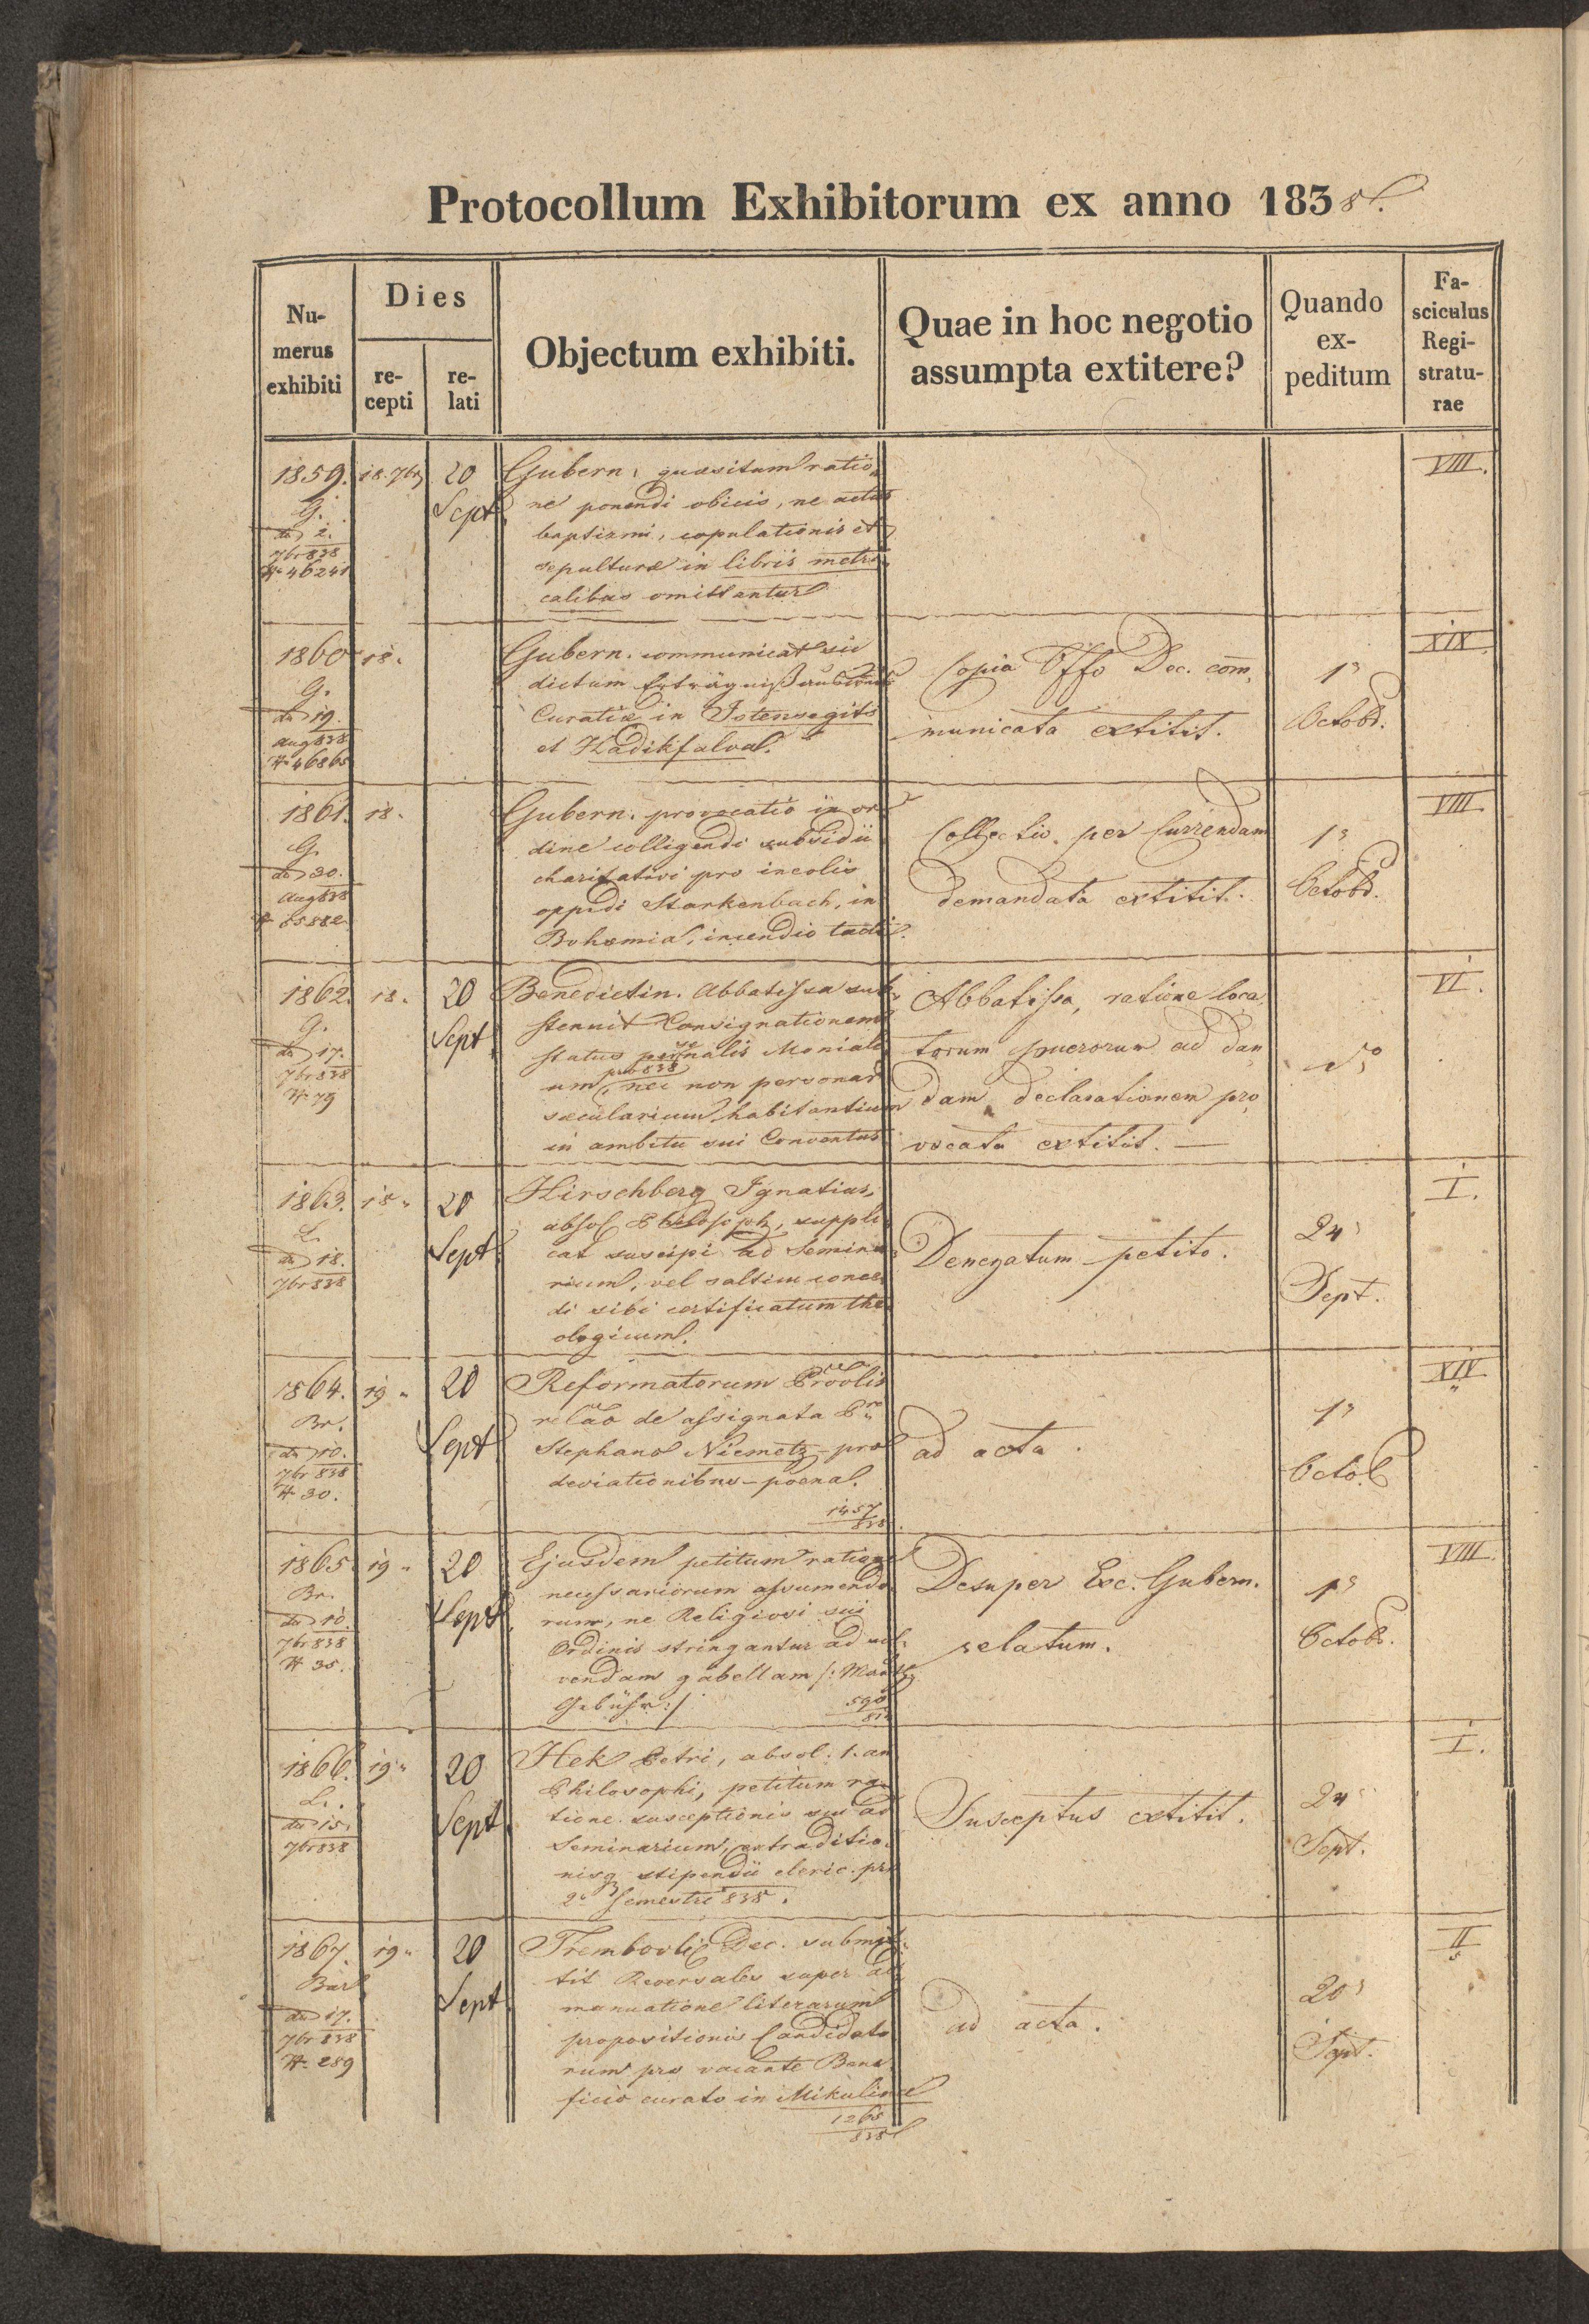 Protocollum Exhibitorum ex anno 1838.
Nu-
merus
exhibiti
Dies
re-
cepti
re-
lati
Objectum exhibiti.
Quae in hoc negotio
assumpta extitere?
Quando
ex-
peditum
Fa-
sciculus
Regi-
stratu-
rae
1859. 18. 7br 20
Sept
G.
dd 2.
7br 838
N 46241
Gubern. quaesitum ratio-
ne ponendi obicis, ne actus
baptismi, copulationis et
sepulturae in libris metri-
calibus omittantur
VIII.
1860 18.
G.
dd 19.
Aug 838
N 46865
Gubern. communicat sic
dictum Erträgniß
Curatiae in Istensegits
et Hadikfalva.
Copia Offo Dec. com̄-
municata extitit.
1a
Octob.
XIX
1861. 18.
G.
dd 30.
Aug 838
Gubern. provocatio in or-
dine colligendi subsidii
charitativi pro incolis
oppidi Starkenbach, in
Bohemia, incendio tacti.
Collectio per Currendam
demandata extitit.
1a
Octob.
VIII
1862. 18. 20
Sept
G.
dd 17.
7br 838
N 79
Benedictin. Abbatissa sub-
sternit Consignationem
status personalis Monial-
um pro 838, nec non personar
saecularium habitantium
in ambitu sui Conventus
Abbatissa, ratione loca-
torum puerorum ad dan-
dam declarationem pro-
vocata extitit. —
VI.
1863. 18. 20
Sept
L.
dd 18.
7br 838
Hirschberg Ignatius,
absol Philosoph, suppli-
cat suscipi ad Semina-
rium, vel saltim conce-
di sibi certificatum the-
ologicum.
Denegatum petito.
24
Sept.
I.
1864. 19 20
Sept
Br.
dd 10.
7br 838
N 30.
Reformatorum Provlis
relao de assignata P.
Stephano Niemetz pro
deviationibus poena.
1457
838
ad acta.
1a
Octob
XIV
1865 19 20
Sept
Br.
dd 10.
7br 838
N 35.
Ejusdem petitum ratione
necessariorum assumendo-
rum, ne Religiosi sui
Ordinis stringantur ad sol-
vendam gabellam /: Mauth
Gebühr :/
590
Desuper Exc. Gubern.
relatum.
1a
Octob.
VIII.
1866. 19 20
Sept
L.
dd 15.
7br 838
Hek Petri, absol. 1. an
Philosophi, petitum ra-
tione susceptionis sui ad
Seminarium, extraditio-
nisq stipendii cleric. pro
2o Semestri 838.
Susceptus extitit.
24
Sept.
I.
1867. 19 20
Sept
dd 17.
7br 838
N 289
Trembovlic Dec. submit-
tit Reversales super ad
manuatione literarum
propositionis Candidato-
rum pro vacante Bene-
ficio curato in Mikulince
1265
838
ad acta.
20
Sept.
II